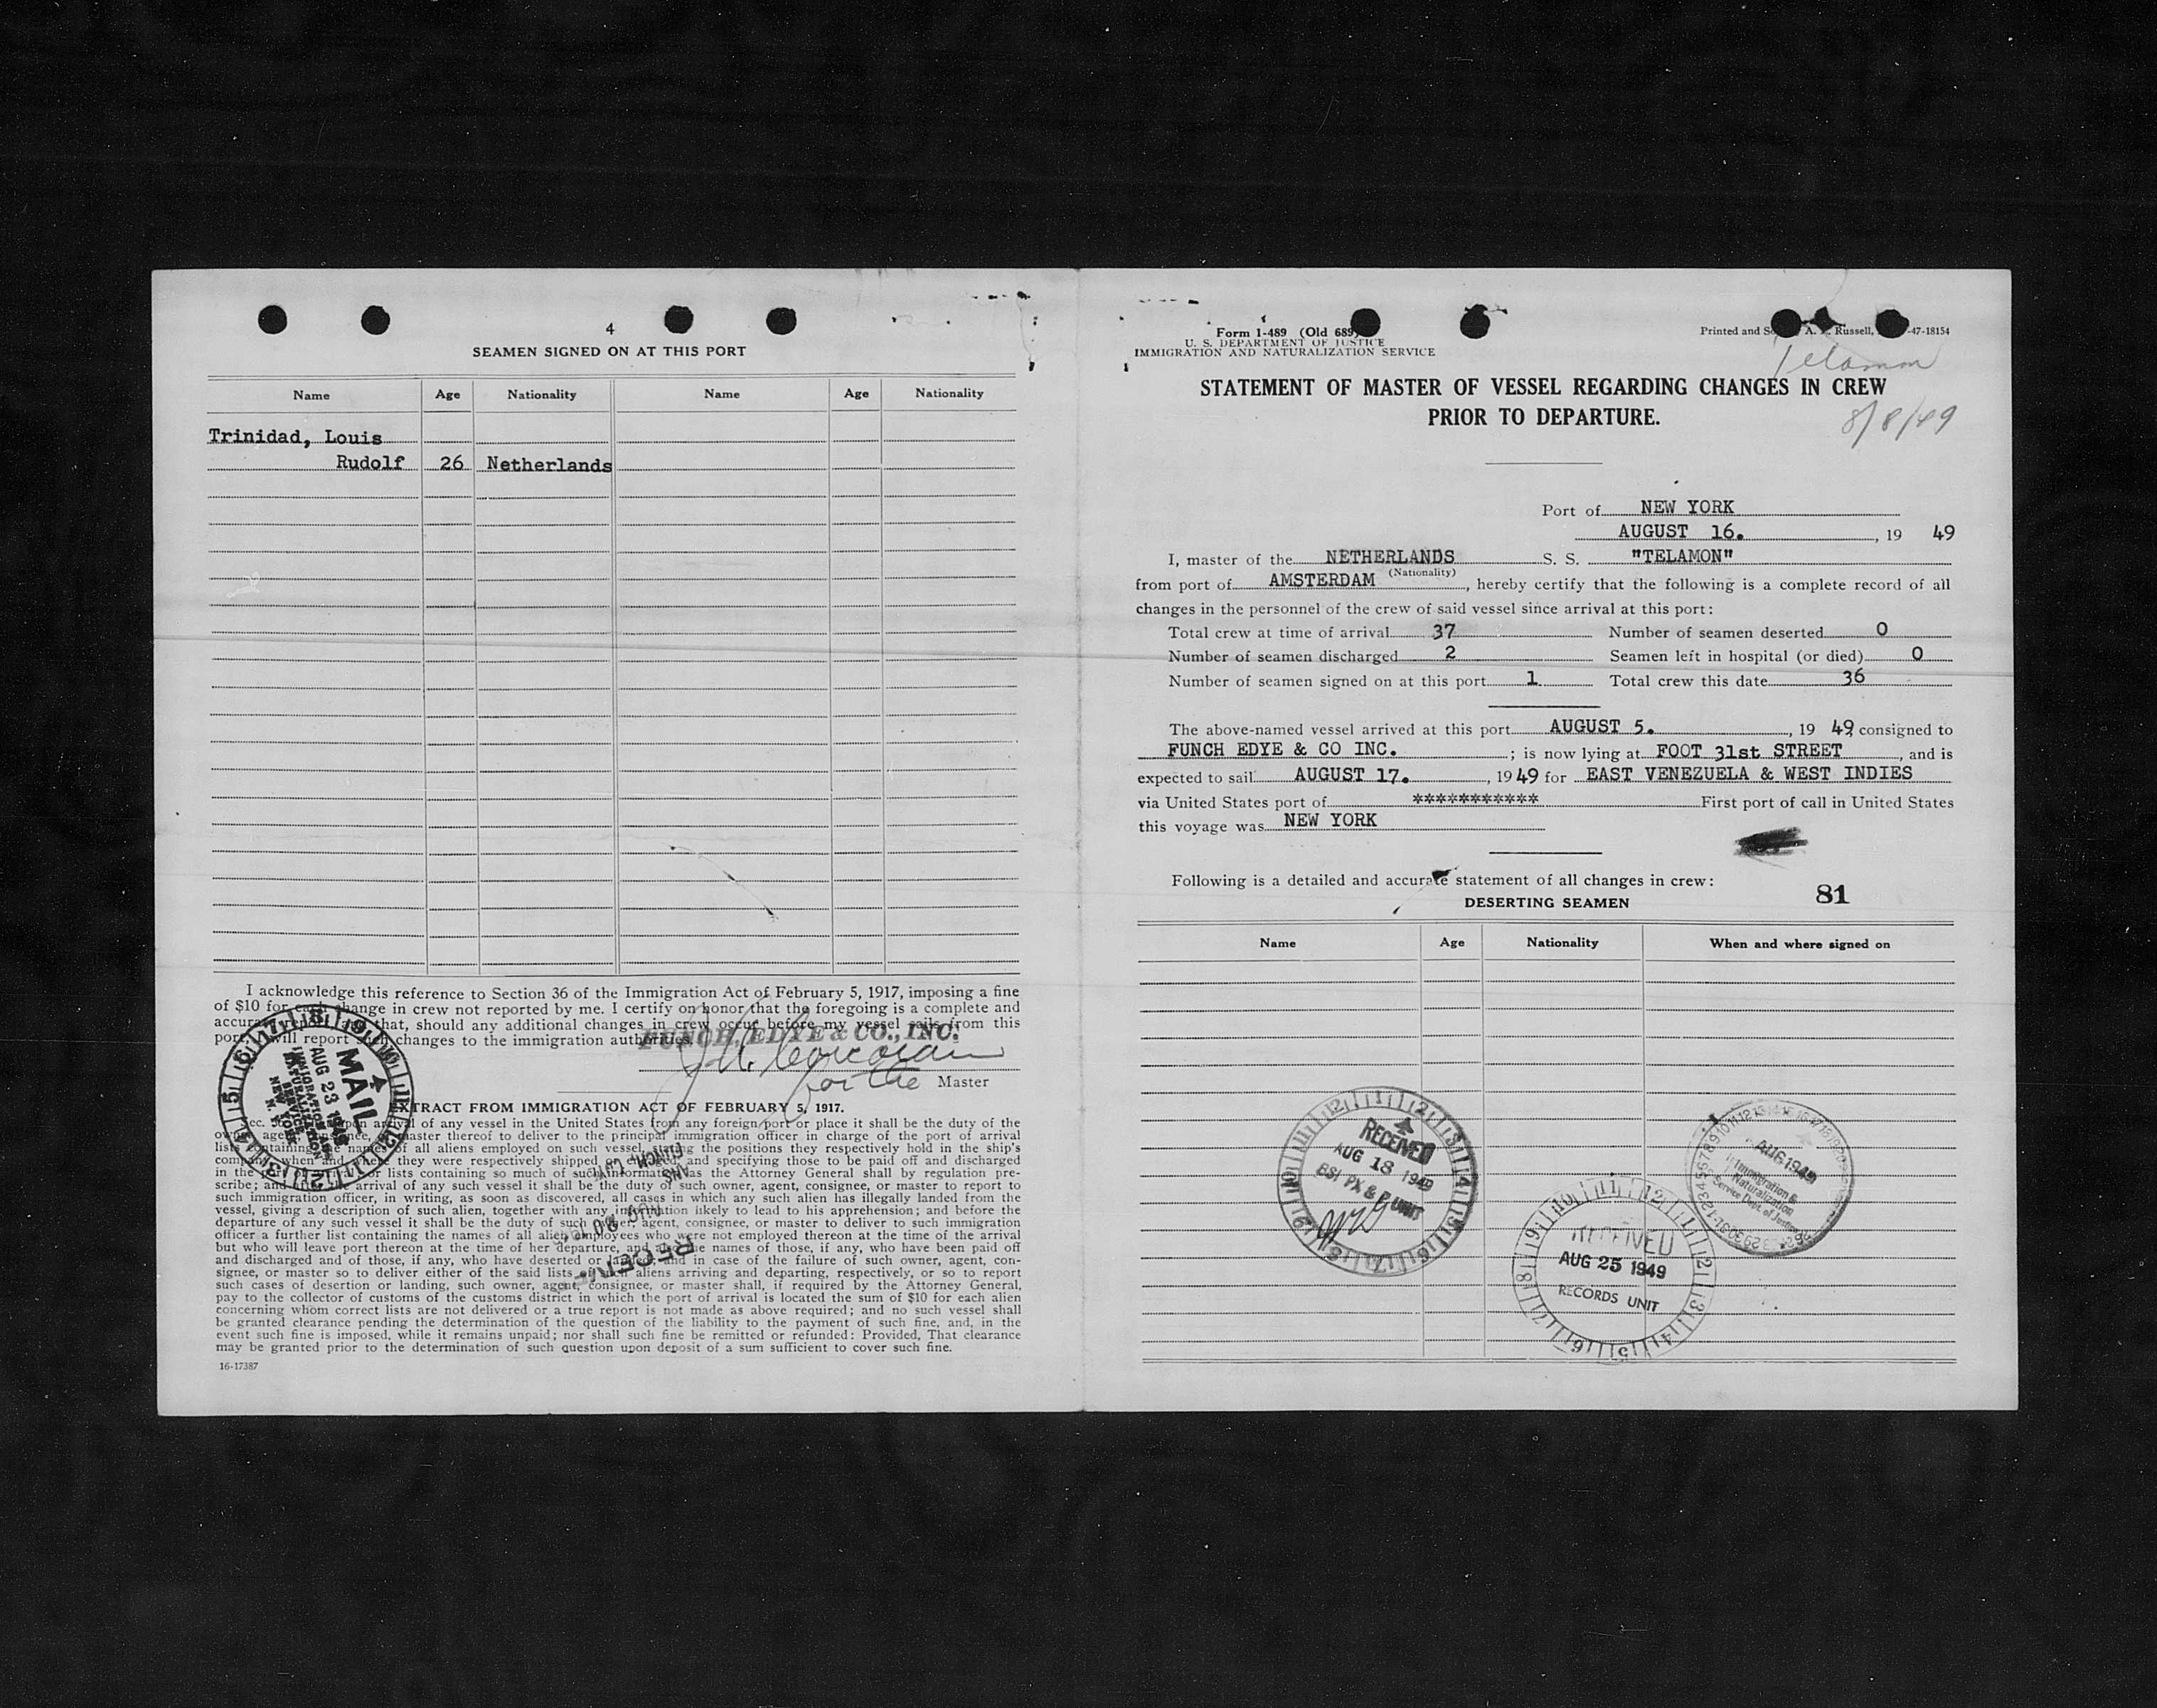 4
SEAMEN SIGNED ON AT THIS PORT
Name Age Nationality Name Age Nationality
Trinidad, Louis
Rudolf 26 Netherlands
I acknowledge this reference to Section 36 of the Immigration Act of February 5, 1917, imposing a fine
of $10 for each change in crew not reported by me. I certify on honor that the foregoing is a complete and
accurate report and that, should any additional changes in crew occur before my vessel sails from this
port, I will report such changes to the immigration authorities.
FUNCH, EDYE & CO., INC.
for the Master
MAIL
AUG 23
EXTRACT FROM IMMIGRATION ACT OF FEBRUARY 5, 1917.
upon arrival of any vessel in the United States from any foreign port or place it shall be the duty of the
owner, agent, consignee, or master thereof to deliver to the principal immigration officer in charge of the port of arrival
lists containing the names of all aliens employed on such vessel, stating the positions they respectively hold in the ship's
company, when and where they were respectively shipped or engaged, and specifying those to be paid off and discharged
in the port of arrival; or lists containing so much of such information as the Attorney General shall by regulation pre-
scribe; and after the arrival of any such vessel it shall be the duty of such owner, agent, consignee, or master to report to
such immigration officer, in writing, as soon as discovered, all cases in which any such alien has illegally landed from the
vessel, giving a description of such alien, together with any information likely to lead to his apprehension; and before the
departure of any such vessel it shall be the duty of such owner, agent, consignee, or master to deliver to such immigration
officer a further list containing the names of all alien employees who were not employed thereon at the time of the arrival
but who will leave port thereon at the time of her departure, and also the names of those, if any, who have been paid off
and discharged and of those, if any, who have deserted or landed; and in case of the failure of such owner, agent, con-
signee, or master so to deliver either of the said lists of such aliens arriving and departing, respectively, or so to report
such cases of desertion or landing, such owner, agent, consignee, or master shall, if required by the Attorney General,
pay to the collector of customs of the customs district in which the port of arrival is located the sum of $10 for each alien
concerning whom correct lists are not delivered or a true report is not made as above required; and no such vessel shall
be granted clearance pending the determination of the question of the liability to the payment of such fine, and, in the
event such fine is imposed, while it remains unpaid; nor shall such fine be remitted or refunded: Provided, That clearance
may be granted prior to the determination of such question upon deposit of a sum sufficient to cover such fine.
16-17387
Form 1-489 (Old 689)
U. S. DEPARTMENT OF JUSTICE
IMMIGRATION AND NATURALIZATION SERVICE
Printed and A. Russell, -47-18154
Telamon
STATEMENT OF MASTER OF VESSEL REGARDING CHANGES IN CREW
PRIOR TO DEPARTURE.
8/8/49
Port of NEW YORK
AUGUST 16. , 19 49
I, master of the NETHERLANDS S. S. "TELAMON"
(Nationality)
from port of AMSTERDAM , hereby certify that the following is a complete record of all
changes in the personnel of the crew of said vessel since arrival at this port:
Total crew at time of arrival 37 Number of seamen deserted 0
Number of seamen discharged 2 Seamen left in hospital (or died) 0
Number of seamen signed on at this port 1 Total crew this date 36
The above-named vessel arrived at this port AUGUST 5. , 19 49, consigned to
FUNCH EDYE & CO INC. ; is now lying at FOOT 31st STREET , and is
expected to sail AUGUST 17. , 19 49 for EAST VENEZUELA & WEST INDIES
via United States port of *********** First port of call in United States
this voyage was NEW YORK
Following is a detailed and accurate statement of all changes in crew:
DESERTING SEAMEN 81
Name Age Nationality When and where signed on
RECEIVED
AUG 18 1949
BSI PX & P UNIT
AUG 1949
Immigration &
Naturalization
Service Dept. of Justice
RECEIVED
AUG 25 1949
RECORDS UNIT